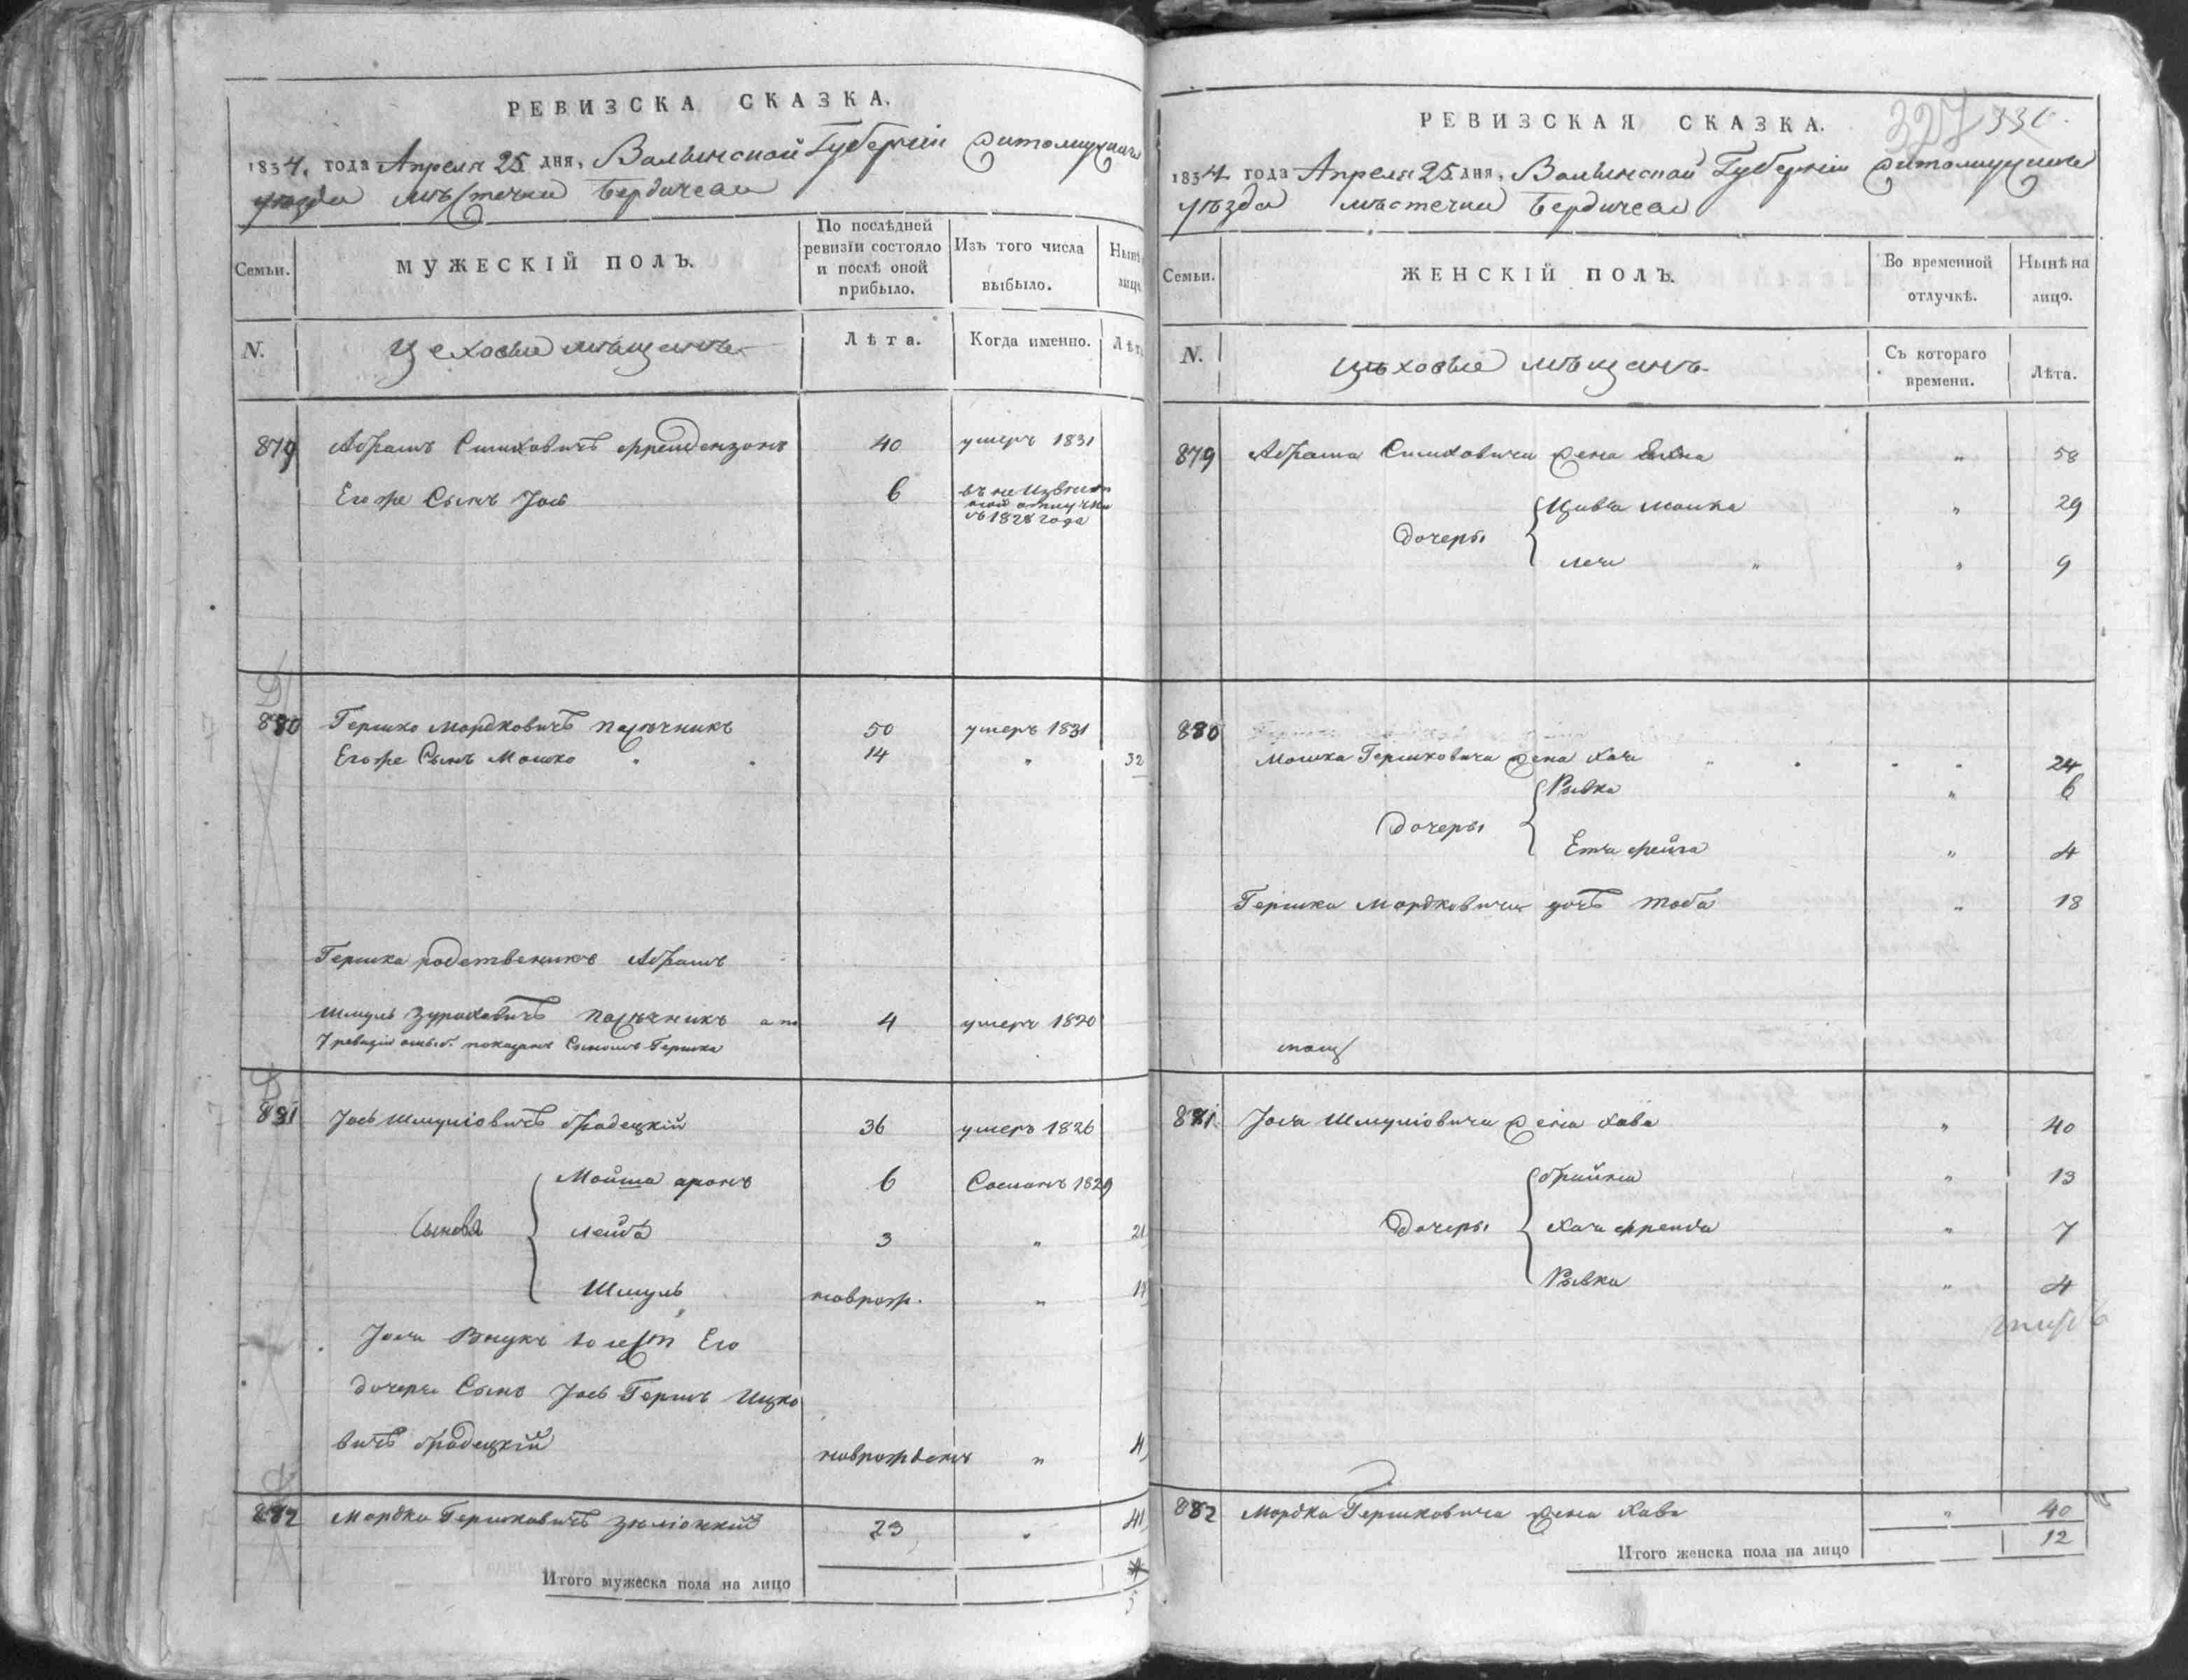 РЕВИЗСКА СКАЗКА.
1834. года Апреля 25 дня, Волынской Губернiи Житомирскаго
уѣзда мѣстечка Бердичева
Семьи.
МУЖЕСКIЙ ПОЛЪ.
По послѣдней ревизiи состояло и послѣ оной прибыло.
Изъ того числа выбыло.
Нынѣ лицо
N.
Цеховые мѣщанъ
Лѣта.
Когда именно.
Лѣт
879 Абрамъ Симховичъ Френдензонъ 40 умеръ 1831
Егоже Сынъ Іось 6 въ неизвѣстной отлучки съ 1828 года
880 Гершко Мордковичъ Пасѣчникъ 50 умеръ 1831
Егоже Сынъ Мошко " 14 " 32
Гершка родственикъ Абрамъ
Шмуль Зураховичъ Пасѣчникъ а по 4 умеръ 1820
7 ревизiи ошиб. показанъ Сыномъ Гершка
881 Іось Шмулiовичъ бродецкiй 36 умеръ 1826
Мойша аронъ 6 1829
Сыновя Лейба 3 " 21
Шмуль новрож. " 14
Іося Внукъ то есть Его
дочери Сынъ Іось Гершъ Ицко
вичъ бродецкiй новрожденъ " 4
882 Мордко Гершковичъ 23 " 41
Итого мужеска пола на лицо
5
РЕВИЗСКАЯ СКАЗКА.
327 330.
1834 года Апреля 25 дня, Волынской Губернiи Житомирскаго
уѣзда мѣстечка Бердичева
Семьи.
ЖЕНСКIЙ ПОЛЪ.
Во временной отлучкѣ.
Нынѣ на лицо.
N.
Цѣховые мѣщанъ
Съ котораго времени.
Лѣта.
879 Абрама Симховича жена " 58
Цивя Молка " 29
Дочеры
Лея " " 9
880
Мошка Гершковича жена Хая " 24
Рывка " 6
Дочеры
Етя фейга " 4
Гершка Мордковича дочь Тоба " 18
881 Іося Шмулiовича жена Хава " 40
брайна " 13
Дочеры Хая френда " 7
Рывка " 4
882 Мордка Гершковича жена Хава " 40
Итого женска пола на лицо 12